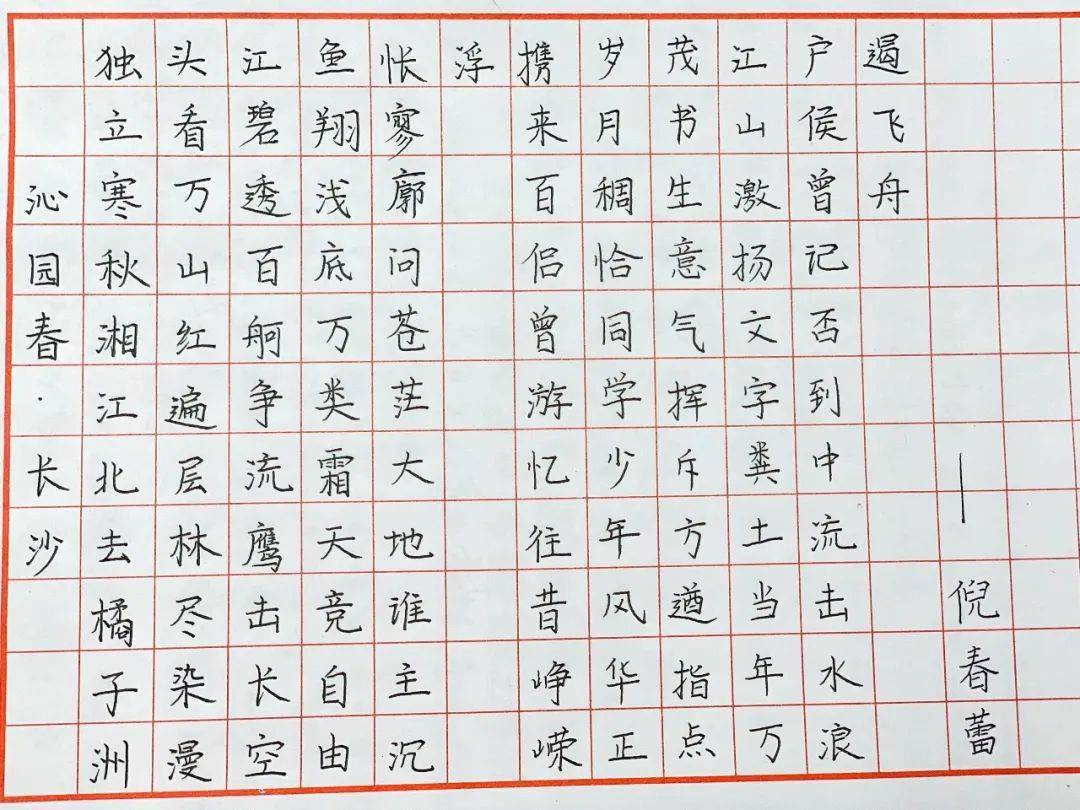 沁园春·长沙
独立寒秋湘江北去橘子洲
头看万山红遍层林尽染漫
江碧透百舸争流鹰击长空
鱼翔浅底万类霜天竞自由
怅寥廓问苍茫大地谁主沉
浮
携来百侣曾游忆往昔峥嵘
岁月稠恰同学少年风华正
茂书生意气挥斥方遒指点
江山激扬文字粪土当年万
户侯曾记否到中流击水浪
遏飞舟
—倪春蕾